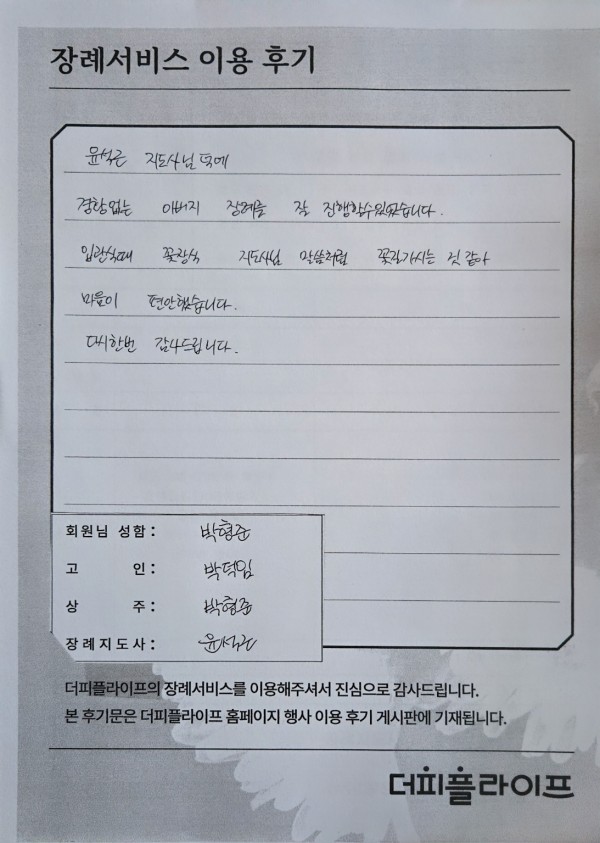 장례서비스 이용 후기
윤석근 지도사님 덕에
경황없는 아버지 장례를 잘 진행할수있었습니다.
입관식때 꽃장식 지도사님 말씀처럼 꽃길가시는 것 같아
마음이 편안했습니다.
다시한번 감사드립니다.
회원님 성함: 박형준
고 인: 박덕임
상 주: 박형준
장례지도사: 윤석근
더피플라이프의 장례서비스를 이용해주셔서 진심으로 감사드립니다.
본 후기문은 더피플라이프 홈페이지 행사 이용 후기 게시판에 기재됩니다.
더피플라이프